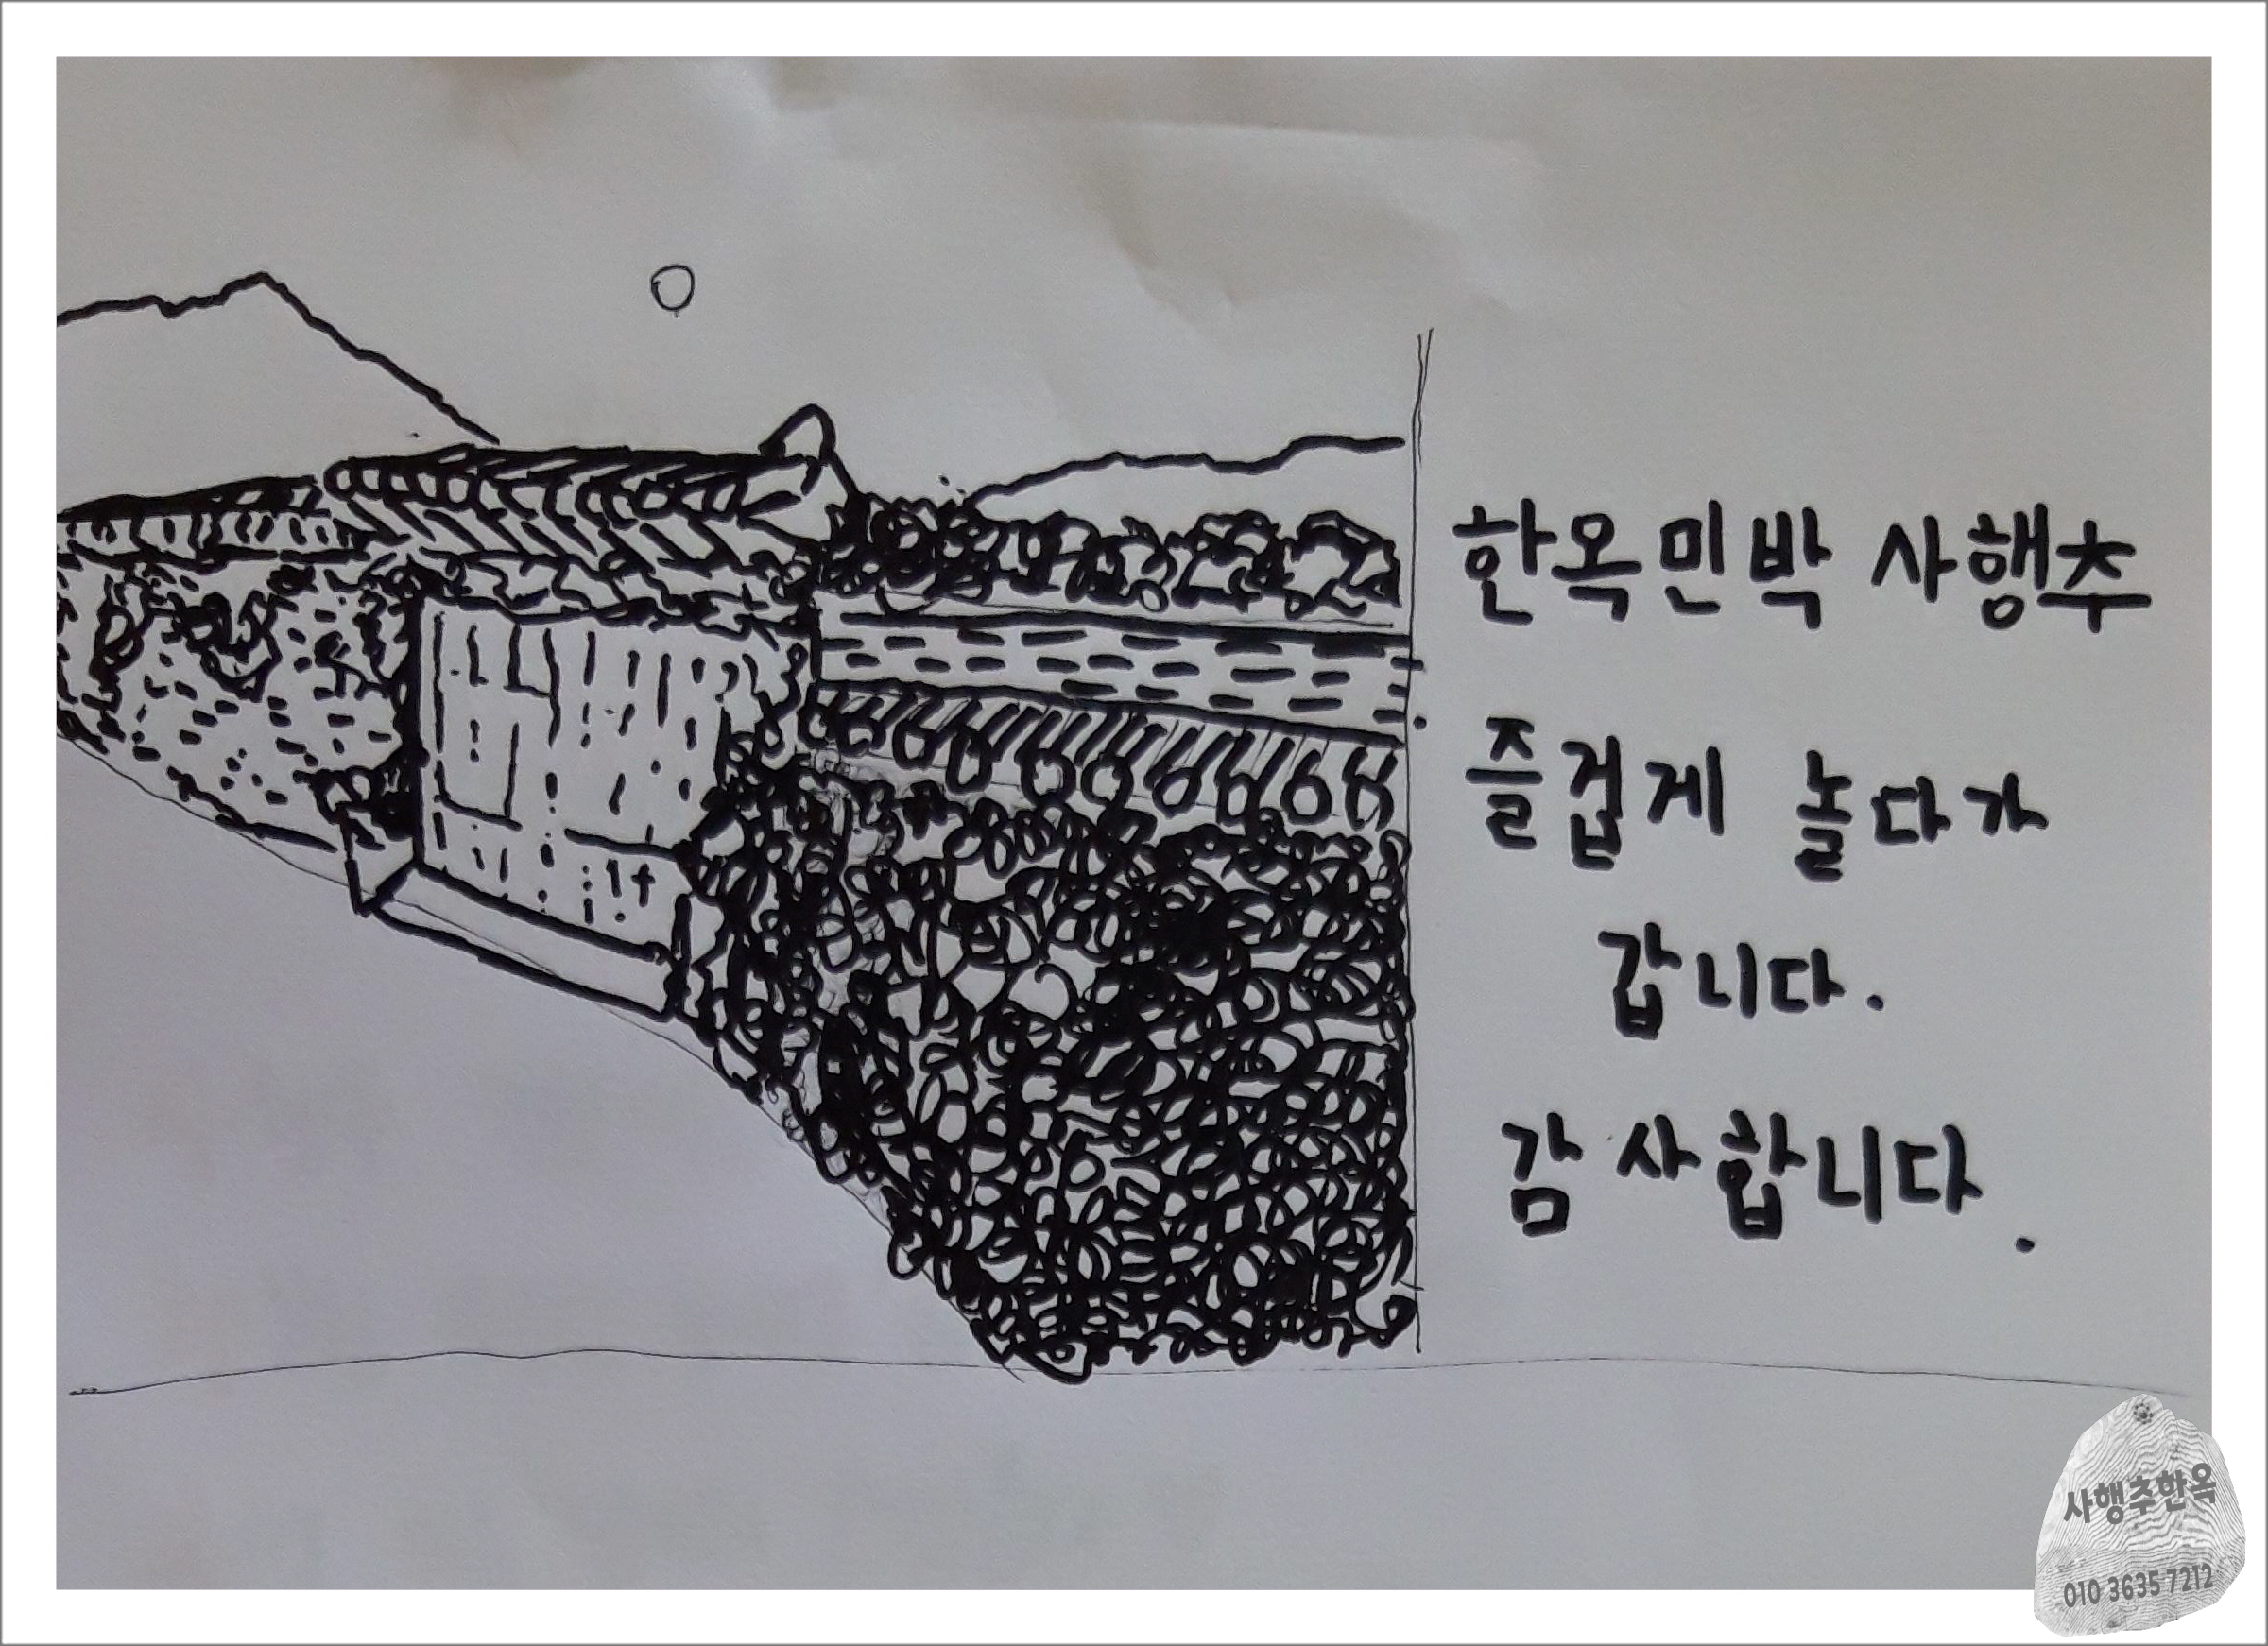 한옥민박 사행추
즐겁게 놀다가
갑니다.
감사합니다.
사행추한옥
010 3635 7212